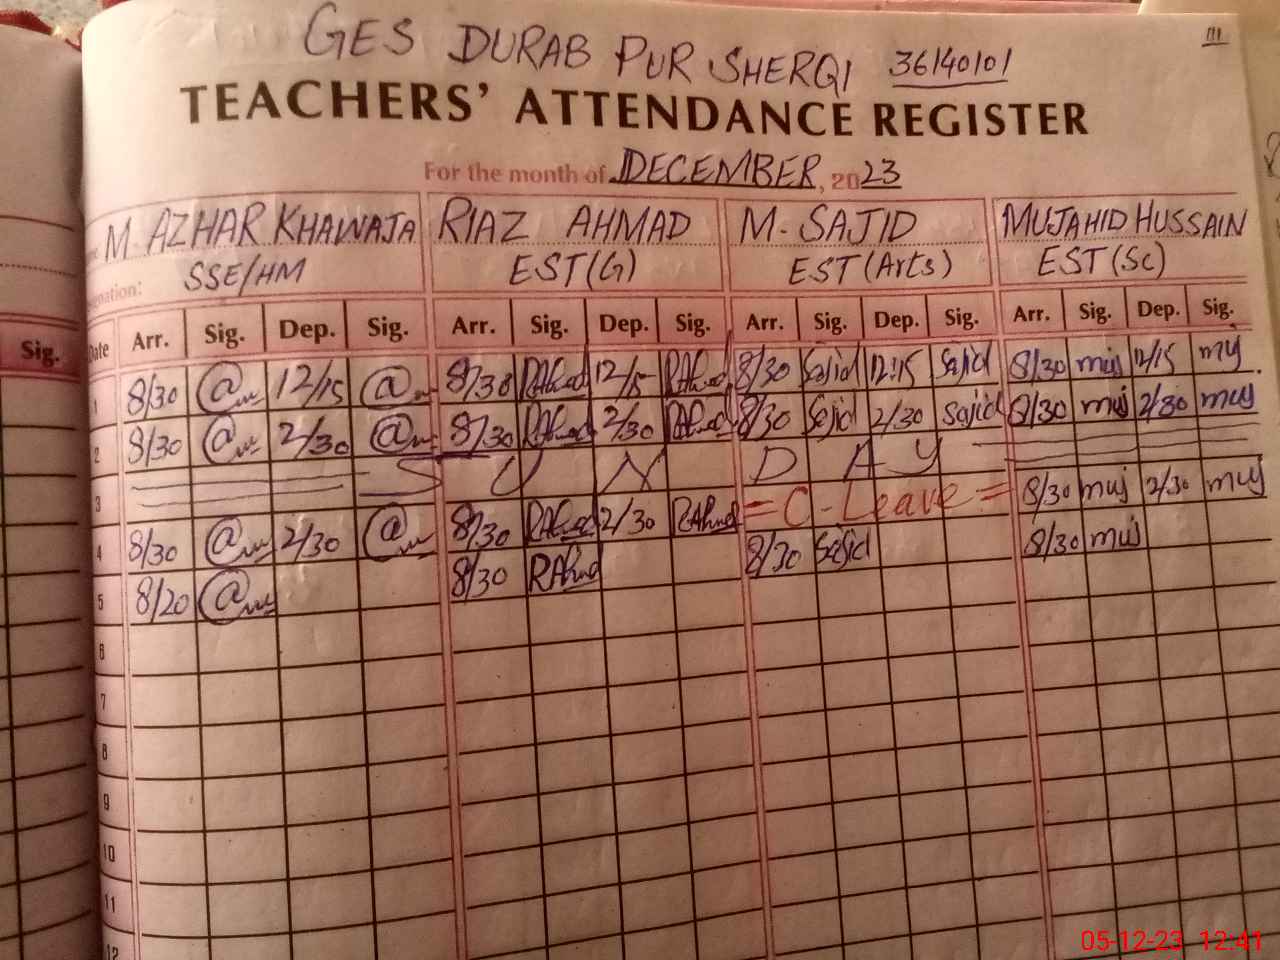 111
GES DURAB PUR SHERQI 36140101
TEACHERS' ATTENDANCE REGISTER
For the month of DECEMBER, 2023
M. AZHAR KHAWAJA RIAZ AHMAD M. SAJID MUJAHID HUSSAIN
SSE/HM EST(G) EST(Arts) EST(Sc)
Sig. Date Arr. Sig. Dep. Sig. Arr. Sig. Dep. Sig. Arr. Sig. Dep. Sig. Arr. Sig. Dep. Sig.
1 8/30 12/15 8/30 RAhmad 12/15 RAhmad 8/30 Sajid 12:15 Sajid 8/30 muj 12/15 muj
2 8/30 2/30 8/30 RAhmad 2/30 RAhmad 8/30 Sajid 2/30 Sajid 8/30 muj 2/30 muj
3 S U N D A Y
4 8/30 2/30 8/30 RAhmad 2/30 RAhmad = C-Leave = 8/30 muj 2/30 muj
5 8/20 8/30 RAhmad 8/30 Sajid 8/30 muj
6
7
8
9
10
11
12
05-12-23 12:41